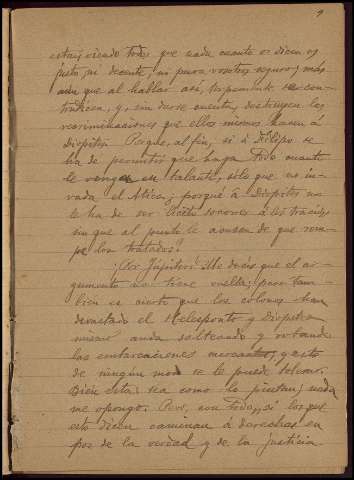 9
estais viendo todos que nada cuanto os dicen es
justo, ni decente, ni para vosotros seguro; más
aun que al hablar así, torpemente se con-
tradicen, y, sin darse cuenta, destruyen las
recriminaciones que ellos mismos hacen á
Diopites. Porque, al fin, si á Filipo se
ha de permitir que haga todo cuanto
le venga en talante, sólo que no in-
vada el Ática, porqué á Diopites no
le ha de ser lícito socorrer á los tracios
sin que al punto le acusen de que rom-
pe los tratados?
¡Por Júpiter! Me decís que el ar-
gumento no tiene vuelta; pero tam-
bien es cierto que los colonos han
devastado el Helesponto y Diopites
mismo anda salteando y robando
las embarcaciones mercantes, y esto
de ningún modo se le puede tolerar.
Bien está: sea como lo pintan; nada
me opongo. Pero, con todo, si los que
esto dicen caminan á derechas en
pos de la verdad y de la justicia